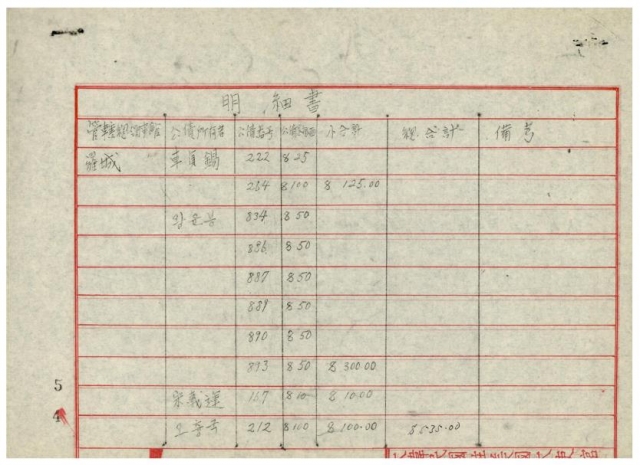 明 細 書
公債所有者 公債番号 公債金額 小合計 總合計 備考
羅城 車貞錫 222 $25
264 $100 $125.00
왕운봉 834 $50
896 $50
887 $50
889 $50
890 $50
893 $50 $300.00
宋義運 167 $10 $10.00
오홍국 212 $100 $100.00 5535.00
5
4